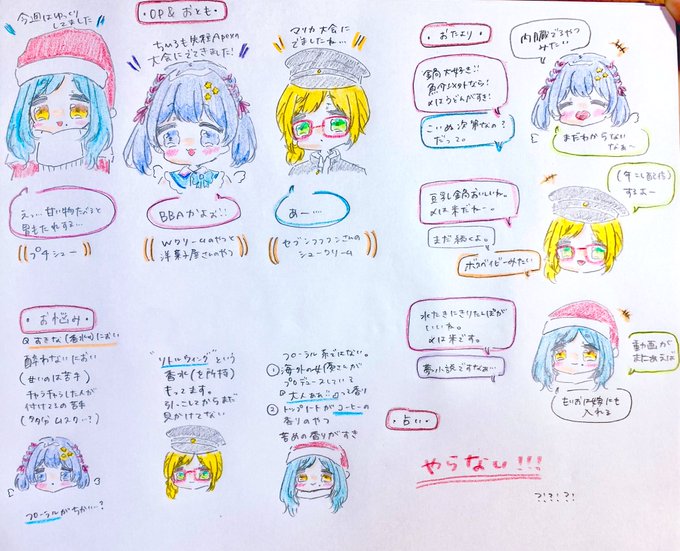 ・OP&おとも・
今週はゆっくり
してました
ちぃろも失粒Apexの
大会にでてきました!
マリカ大会に
でましたね…
え、、、甘い物たべると
胃もたれする…
プチシュー
BBAかよぉ!!
Wクリームのやつと
洋菓子屋さんのやつ
あー…
シュークリーム
・お悩み・
Q すきな(香水の)におい
酔わないにおい
(甘いのは苦手)
チャラチャラした人が
付けてるの苦手
(タブンムスク…?)
フローラルがちかい…?
"リトルウィング"という
香水(を所持)
もってます。
引っこしてからまだ
見かけてない
フローラル系ではない。
① 海外の女優さんが
プロデュースしている
『大人ああ』って香り
② トップノートがコーヒーの
香りのやつ
苦めの香りがすき
・おたより・
内臓でるやつ
みたい
鍋大好き!!
魚介以外なら!
〆はうどんがすき!
こいぬ次第なの?
だって。
まだわからない
なぁ〜
豆乳鍋おいしいね。
〆は米だね〜
するよー
まだ続くよ。
ボスベイビーみたい
水たきにきりたんぽが
いいね。
〆は米です。
夢小説ですなぁ…
動画が
まにあえば
もぃお に嫁にも
入れる
・占い・
やらない!!!
?!?!?!